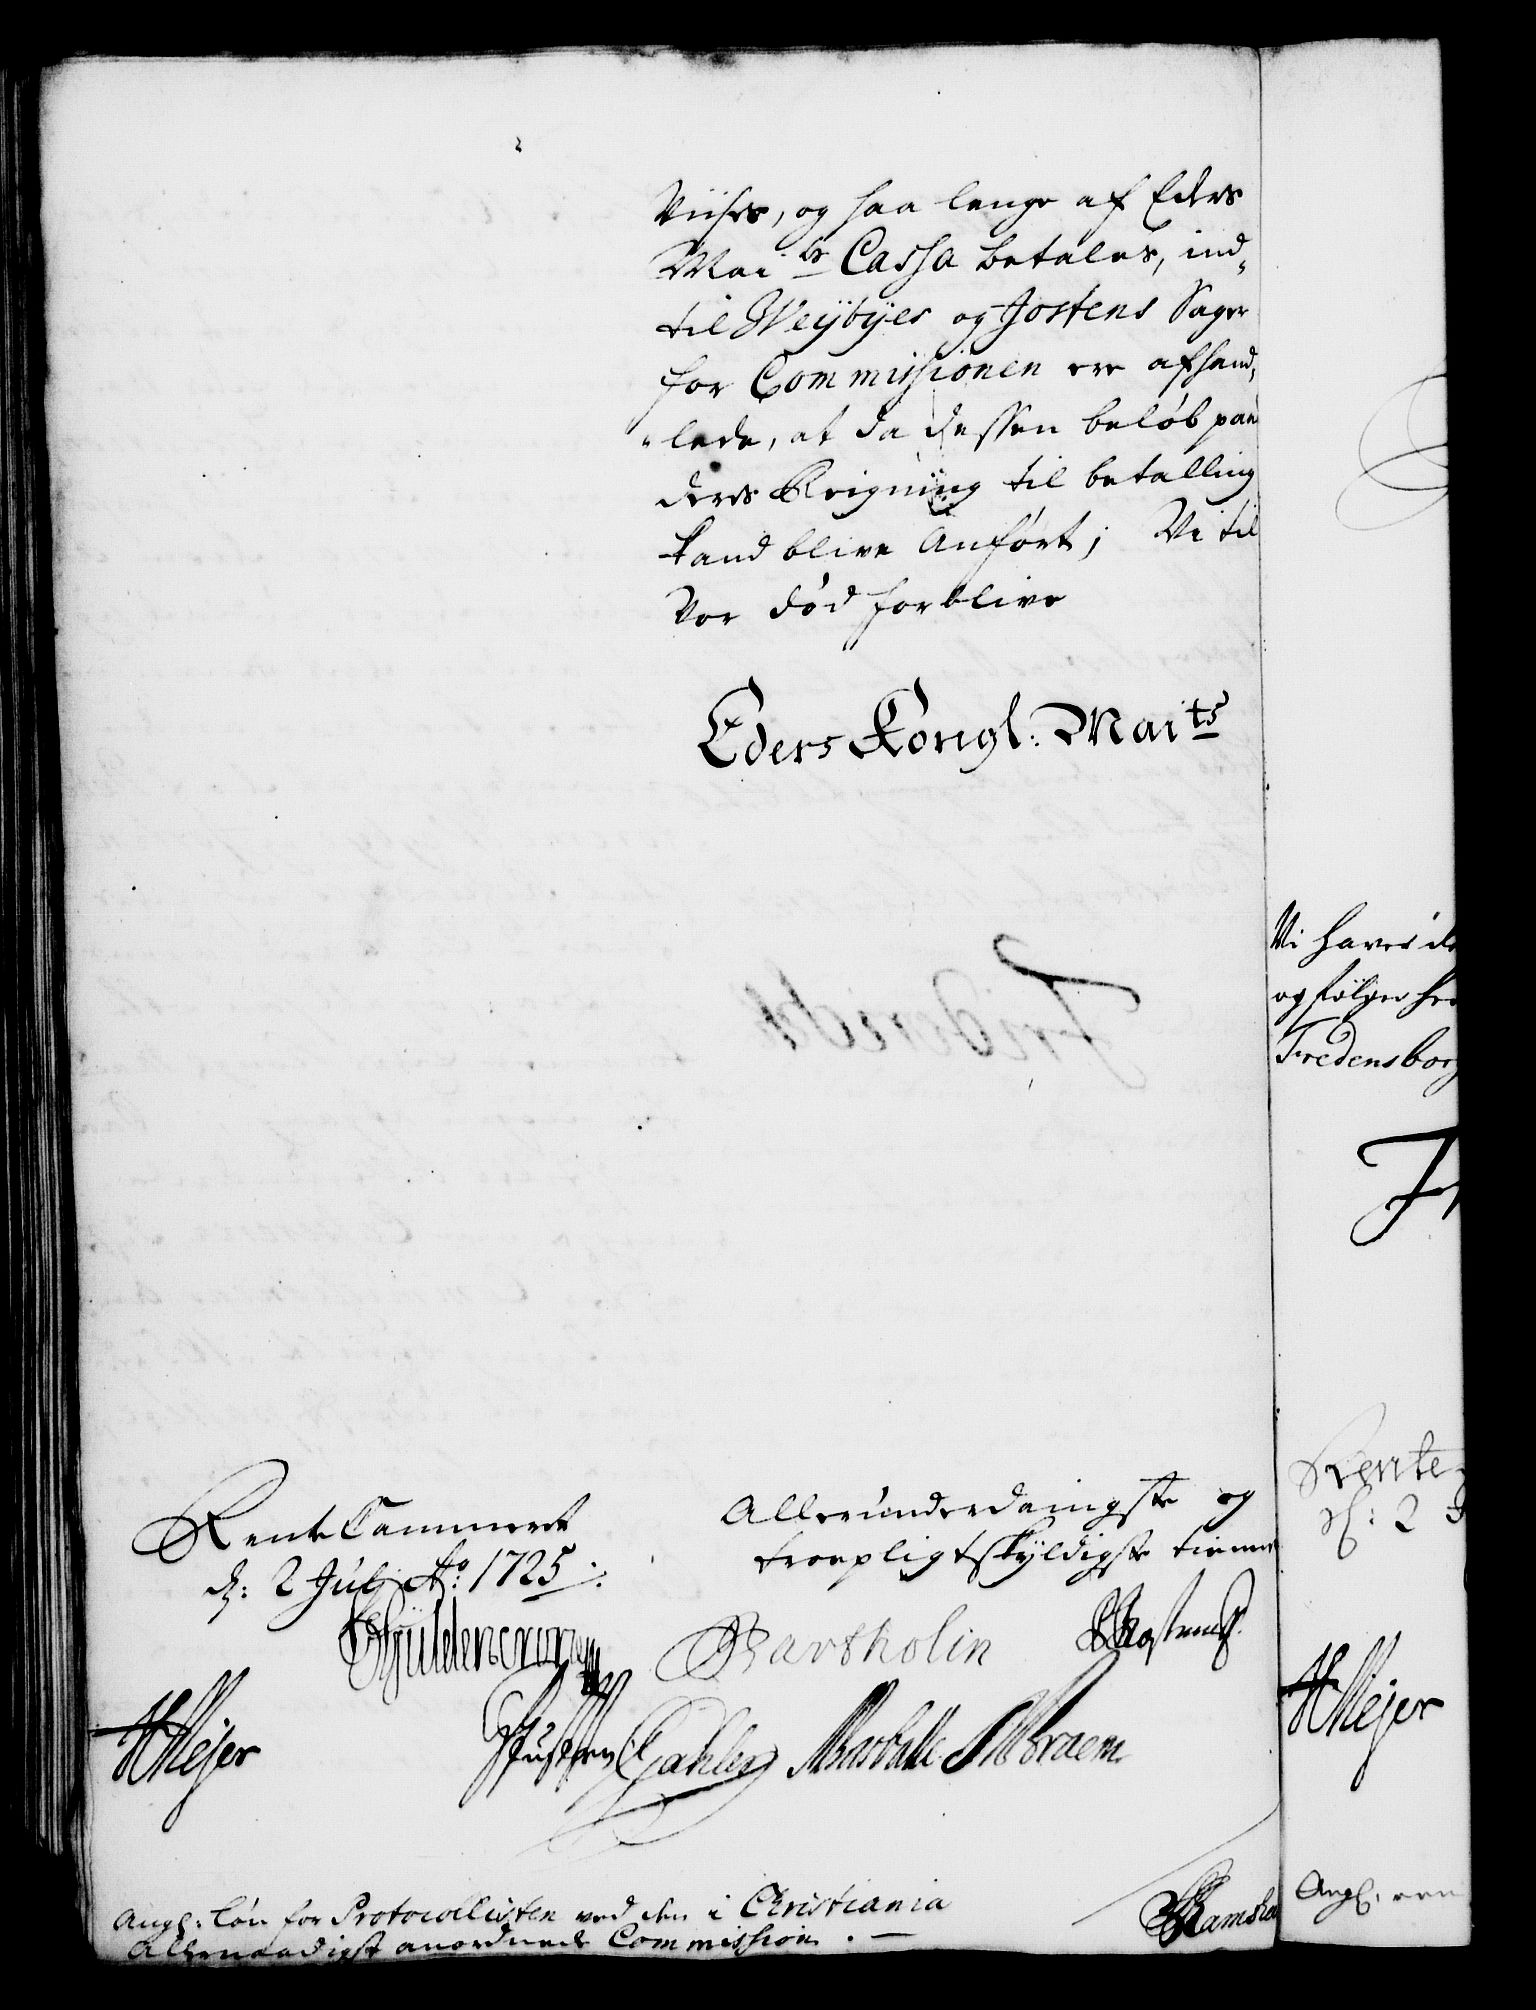 Viises, og saa lenge af Eders
Mai ts Cassa betales, ind„
til Weybyes og Jostens Sager
for Commissionen ere afhand„
„lede, at da dessen beløb paa
deres Reigning til betalling
kand blive Anført; Vi til
Vor død forblive
Eders Kongl: Maits
Friderich
RenteCammeret
d: 2 Juli Ao: 1725.
Allerunderdanigste og
troepligtskyldigste tienere
Güldencrone
Bartholin
HMejer
Gahler
Braem
Ang: løn for Protocollisten ved den i Christiania
Allernaadigst anordnede Commission. —
Ramshart
Vi haver de
og følger her
Fredensborg
Fr
Rente
d: 2 J
HMejer
Ang: een